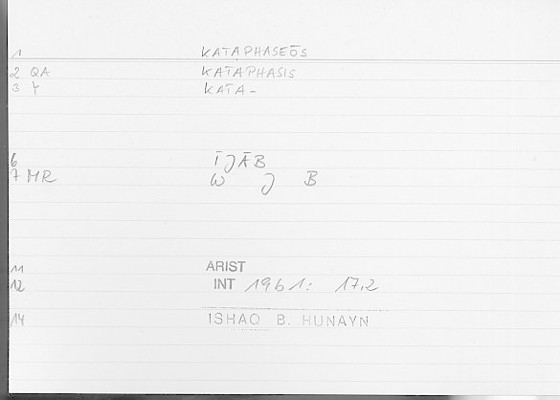 1 KATAPHASEŌS
2 QA KATAPHASIS
3 Y KATA-
6 ĪJĀB
7 MR W J B
11 ARIST
12 INT 1961: 17,2
14 ISHAQ B. HUNAYN